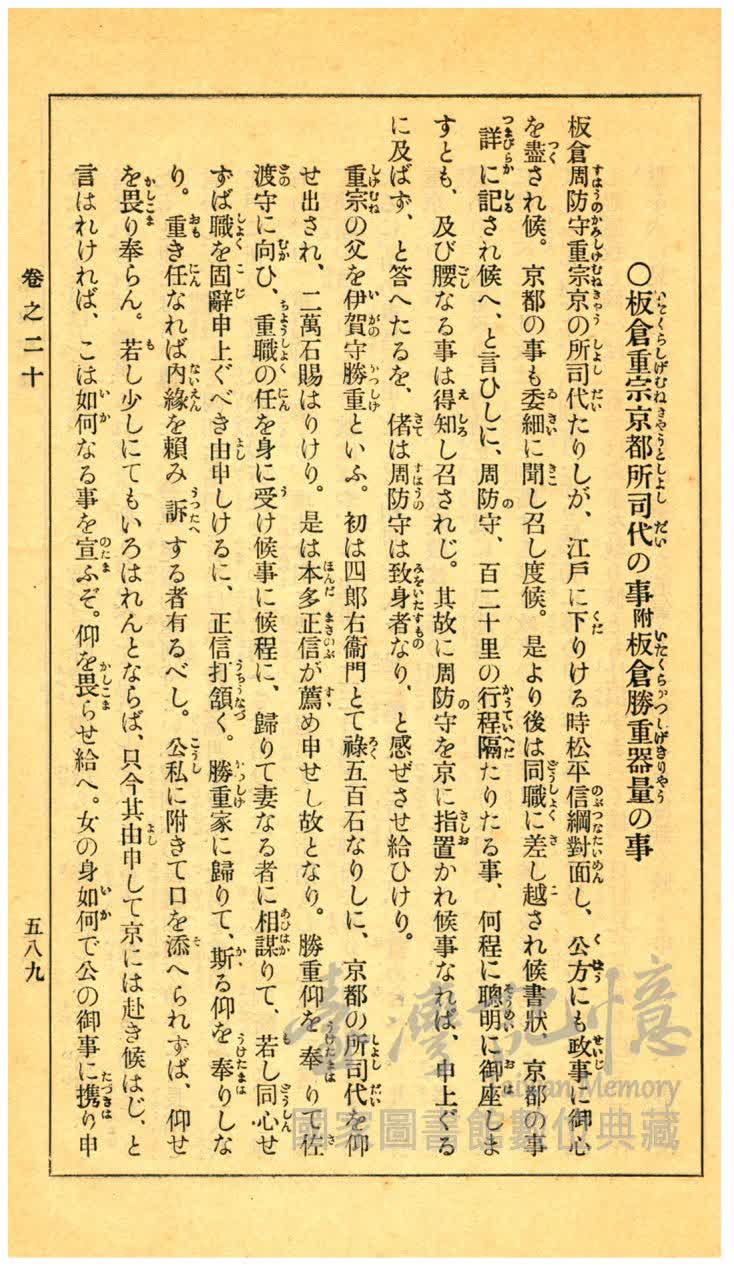 〇板倉重宗京都所司代の事附板倉勝重器量の事
板倉周防守重宗京の所司代たりしが、江戶に下りける時松平信綱對面し、公方にも政事に御心
を盡され候。京都の事も委細に聞し召し度候。是より後は同職に差し越され候書狀、京都の事
詳に記され候へ、と言ひしに、周防守、百二十里の行程隔たりたる事、何程に聰明に御座しま
すとも、及び腰なる事は得知し召されじ。其故に周防守を京に指置かれ候事なれば、申上ぐる
に及ばず、と答へたるを、偖は周防守は致身者なり、と感ぜさせ給ひけり。
重宗の父を伊賀守勝重といふ。初は四郎右衞門とて祿五百石なりしに、京都の所司代を仰
せ出され、二萬石賜はりけり。是は本多正信が薦め申せし故となり。勝重仰を奉りて佐
渡守に向ひ、重職の任を身に受け候事に候程に、歸りて妻なる者に相謀りて、若し同心せ
ずば職を固辭申上ぐべき由申しけるに、正信打頷く。勝重家に歸りて、斯る仰を奉りしな
り。重き任なれば內緣を賴み訴する者有るべし。公私に附きて口を添へられずば、仰せ
を畏り奉らん。若し少しにてもいろはれんとならば、只今其由申して京には赴き候はじ、と
言はれければ、こは如何なる事を宣ふぞ。仰を畏らせ給へ。女の身如何で公の御事に携り申
卷之二十
五八九
臺灣記憶
Taiwan Memory
國家圖書館數位典藏